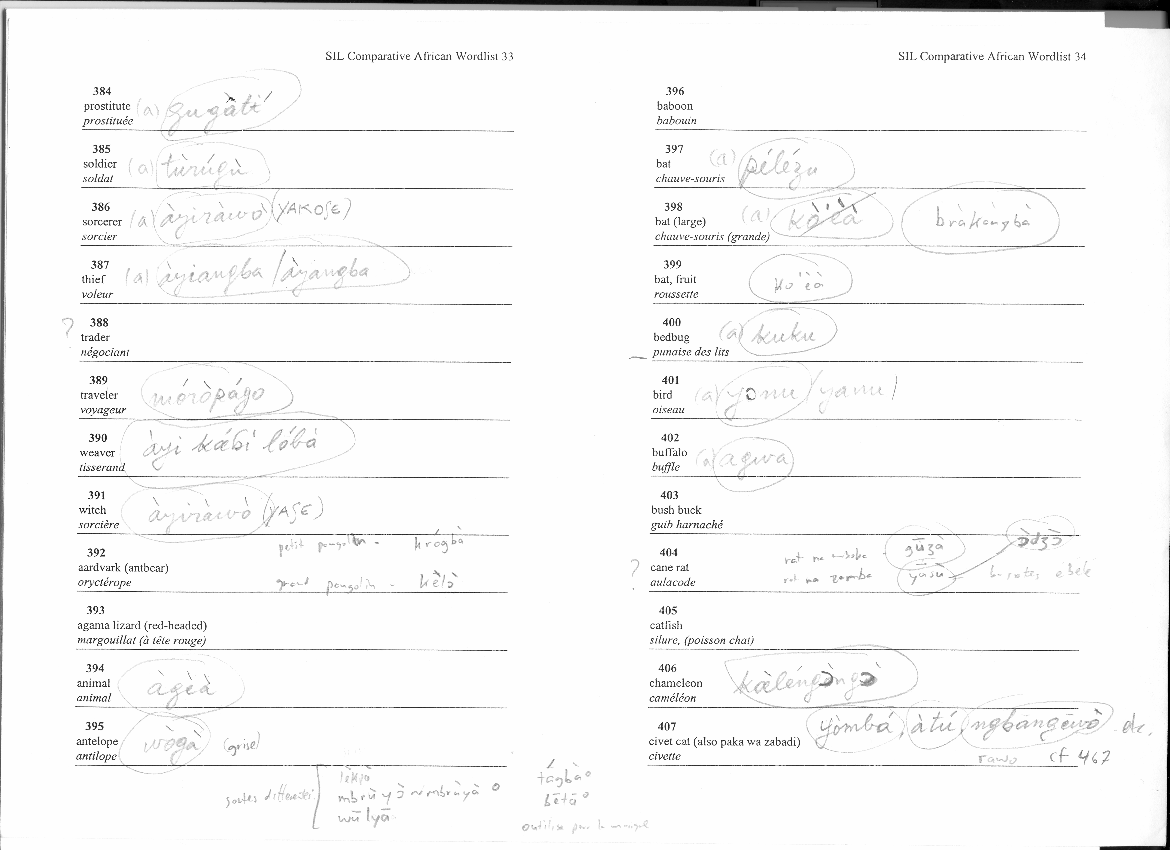 SIL Comparative African Wordlist 33
384
prostitute (a) gugàtí
prostituée
385
soldier (a) tùrúgù
soldat
386
sorcerer (a) àyiràwò (YAKOSE)
sorcier
387
thief (a) àyiangba / àyangba
voleur
? 388
trader
négociant
389
traveler móròpágo
voyageur
390
weaver àyi kábi lóbà
tisserand
391
witch àyiràwò (YASE)
sorcière
petit pangolin - krógbà
392
aardvark (antbear)
oryctérope
grand pangolin - kèlò
393
agama lizard (red-headed)
margouillat (à tête rouge)
394
animal àgèà
animal
395
antelope wògà (grise)
antilope
tágbà
mbrù yò ~ mbrùyà
bētā
wū lyā
SIL Comparative African Wordlist 34
396
baboon
babouin
397
bat (a) pélézu
chauve-souris
398
bat (large) (a) bràkángbà
chauve-souris (grande)
399
bat, fruit
roussette
400
bedbug (a) kuku
punaise des lits
401
bird (a) yɔnu / yanu /
oiseau
402
buffalo (a) agwa
buffle
403
bush buck
guib harnaché
404
gūzà ɔ̀dʒɔ̀
? cane rat
aulacode
rat na zamba
405
catfish
silure, (poisson chat)
406
chameleon kàléngɔ̀ngɔ̀
caméléon
407
yòmbá, àtú, ngbāngēwò etc.
civet cat (also paka wa zabadi)
civette
cf 467